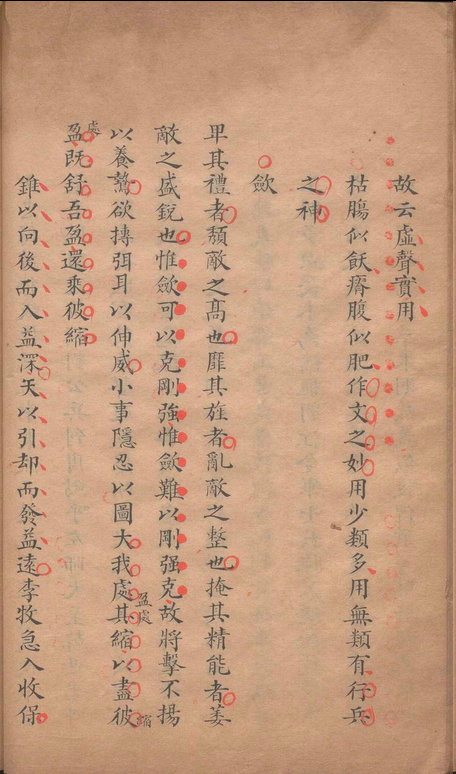 故云虛聲實用
枯腸似飫瘠腹似肥作文之妙用少類多用無類有行兵
之神
歛
卑其禮者頹敵之髙也靡其旌者亂敵之整也掩其精能者萎
敵之盛銳也惟歛可以克剛強惟歛難以剛強克故將擊不揚
以養鷙欲摶弭耳以伸威小事隱忍以圖大我處其縮以盡彼
盈處
縮
處
盈既舒吾盈還乘彼縮
錐以向後而入益深天以引却而發益遠李牧急入收保